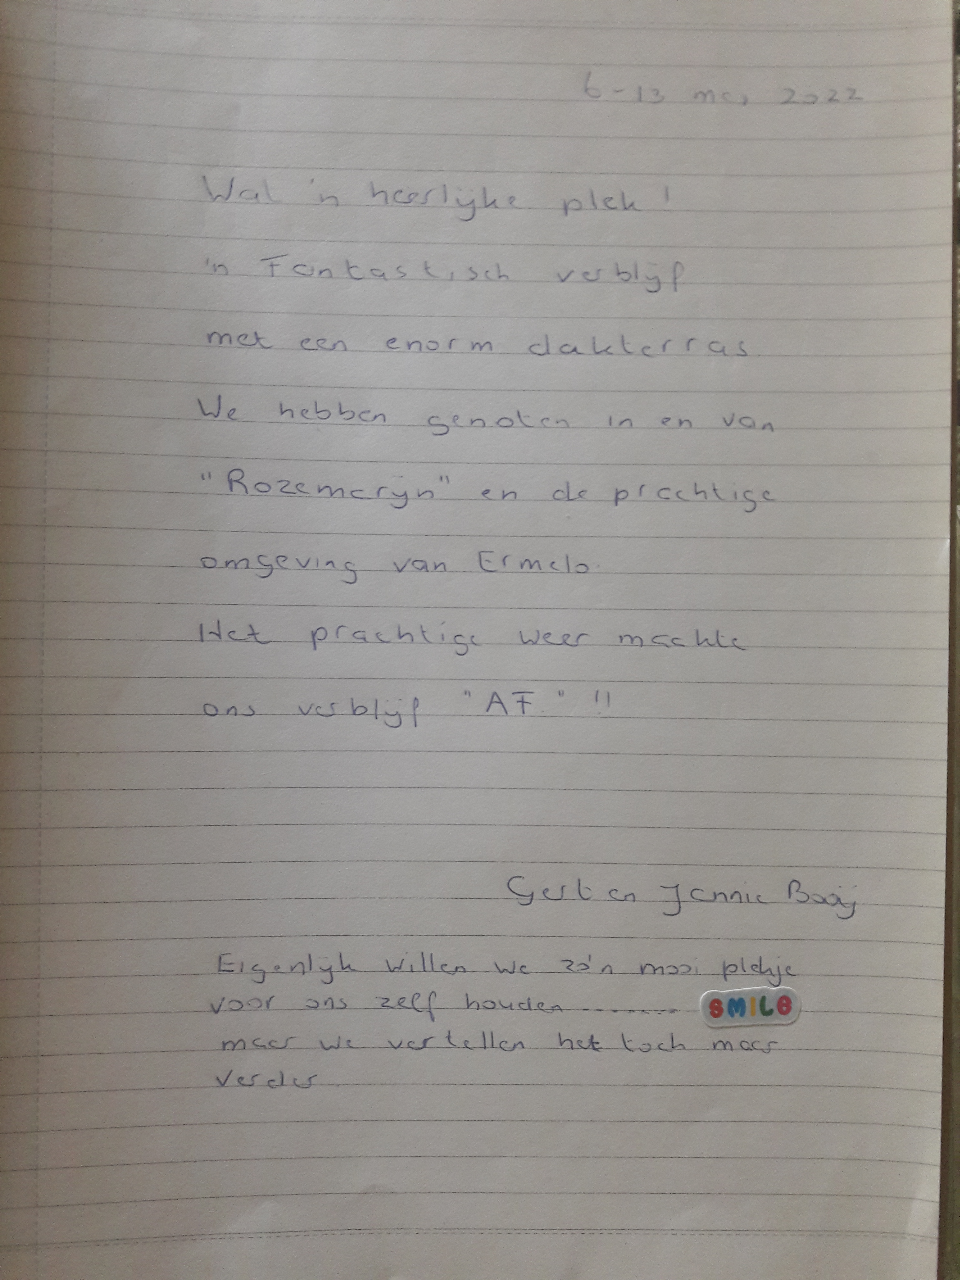 6-13 mei 2022
Wat 'n heerlijke plek!
'n Fantastisch verblijf
met een enorm dakterras
We hebben genoten in en van
"Rozemarijn" en de prachtige
omgeving van Ermelo.
Het prachtige weer maakte
ons verblijf "AF." !!
Gert en Jannie Booij
Eigenlijk willen we zo'n mooi plekje
voor ons zelf houden ........ SMILE
maar we vertellen het toch maar
verder